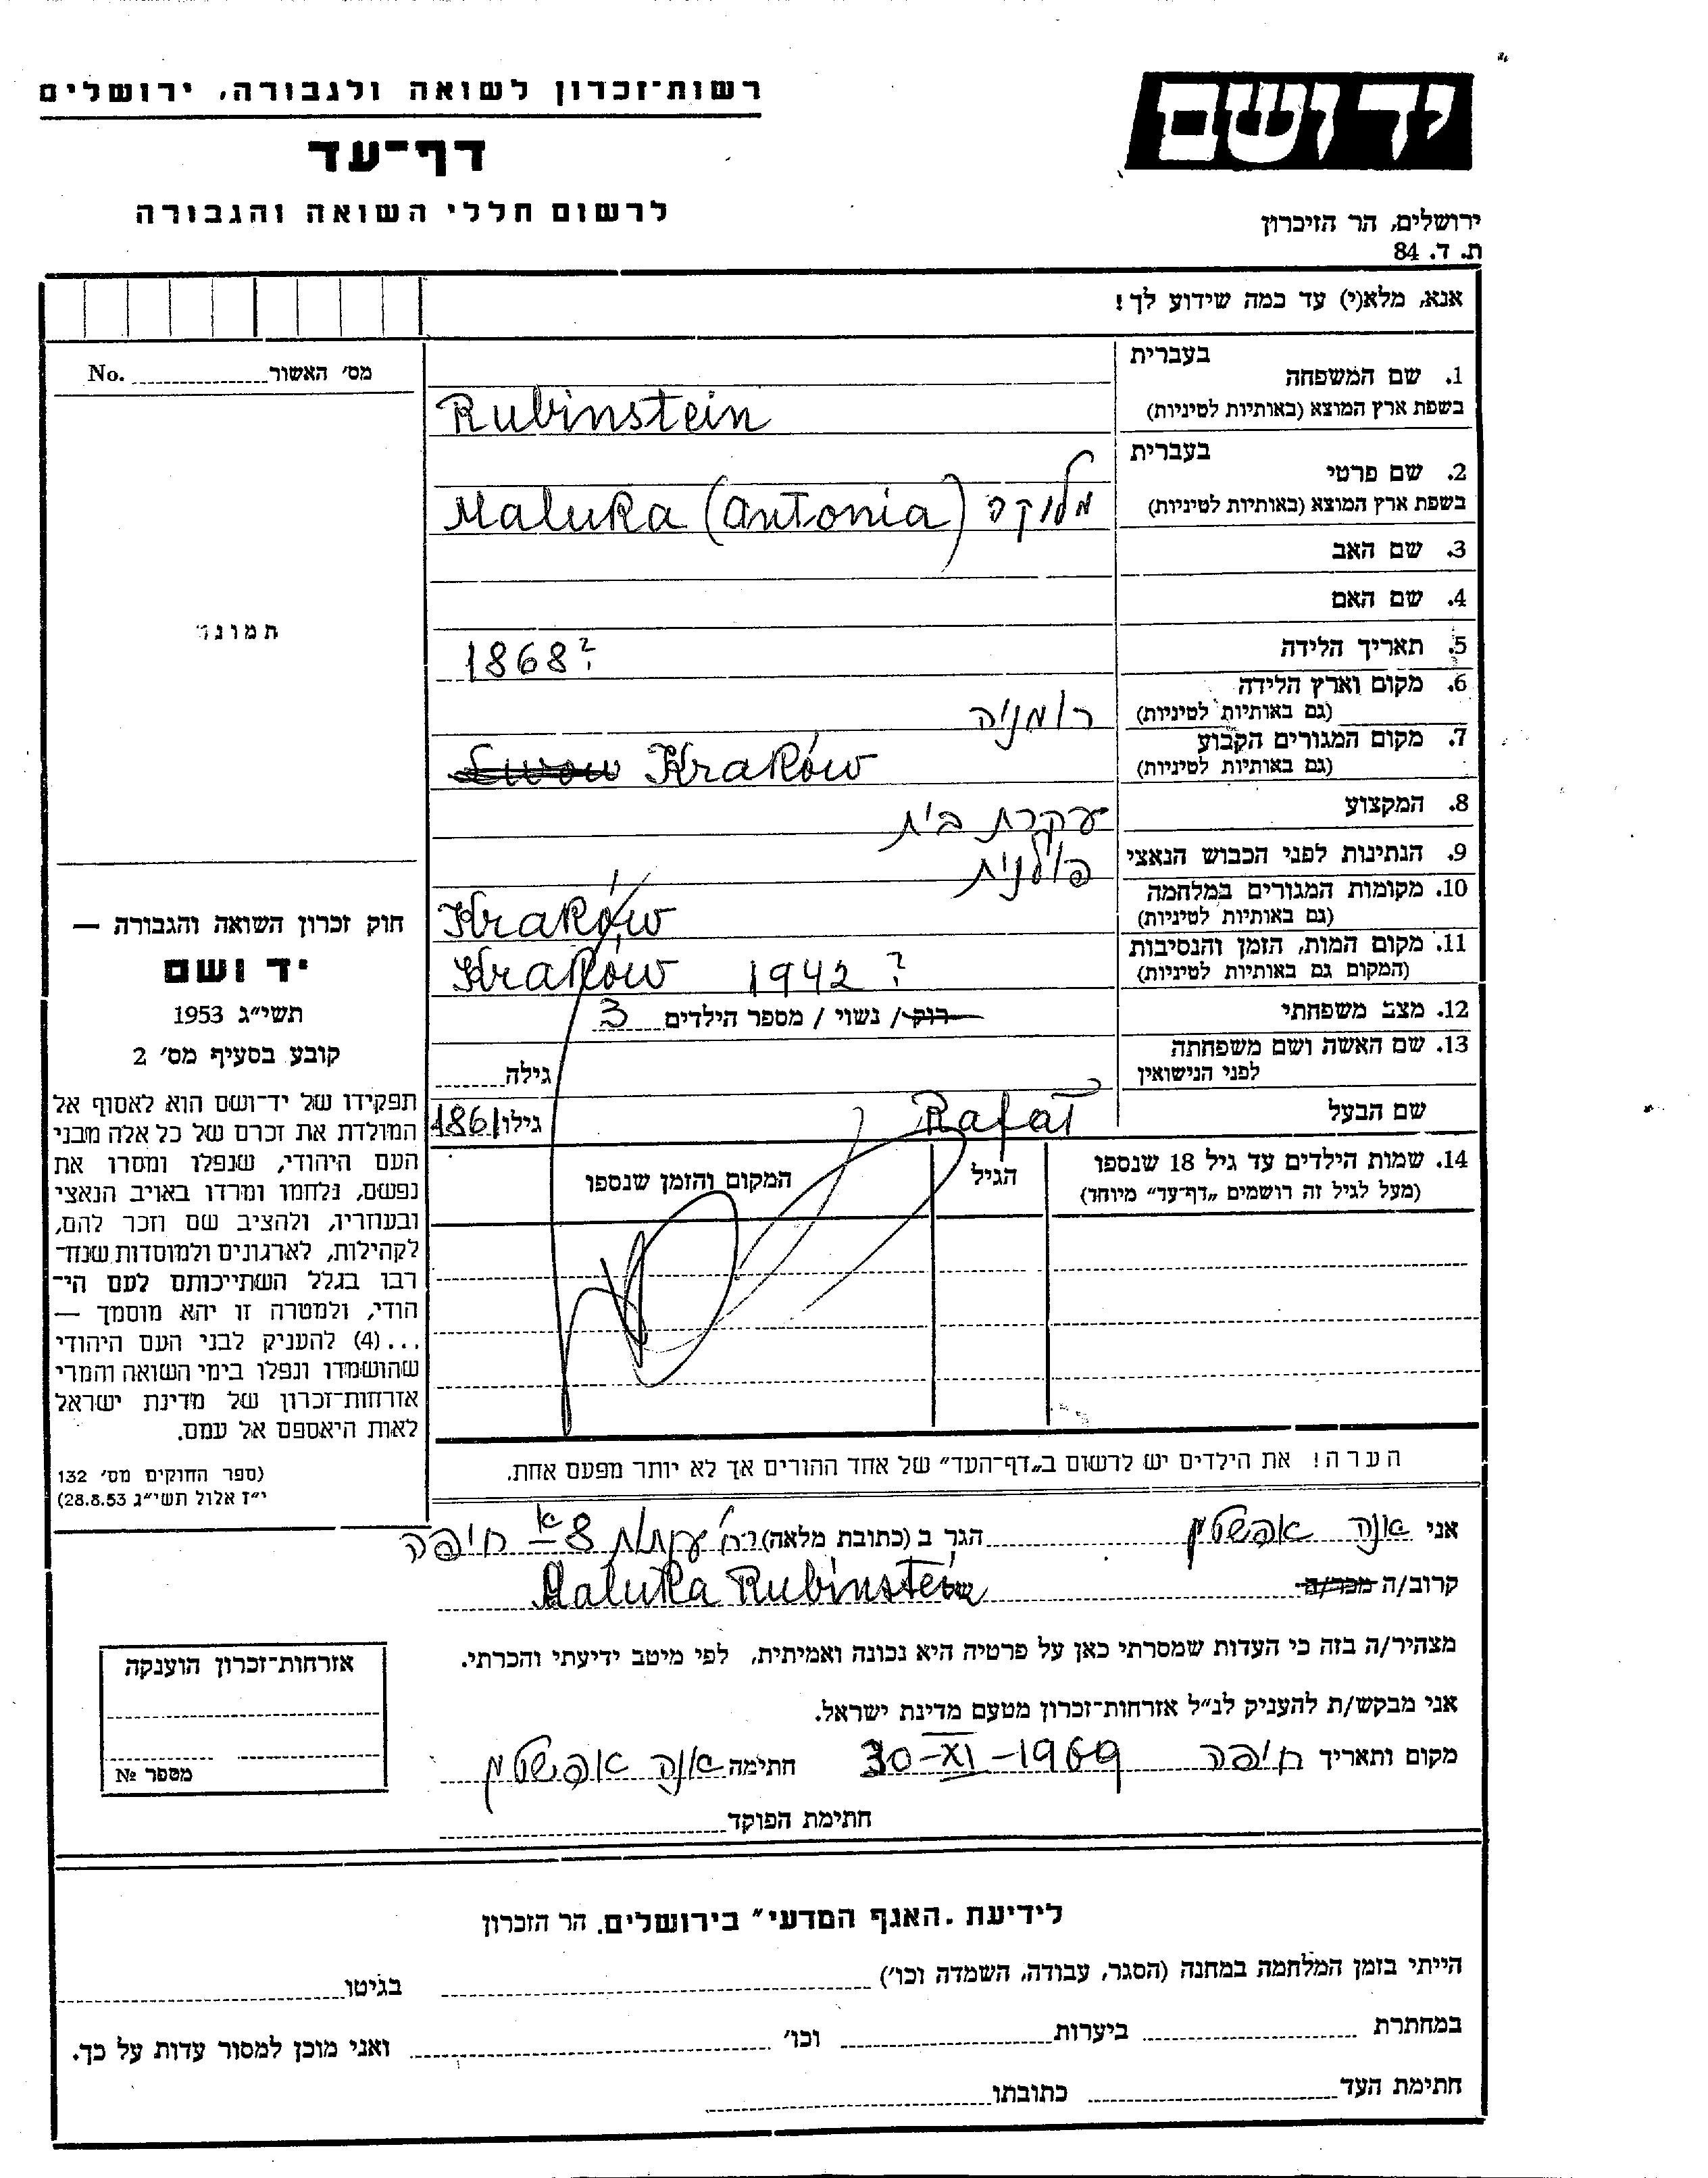 רשות־זכרון לשואה ולגבורה, ירושלים
דף־עד
לרשום חללי השואה והגבורה
יד ושם
ירושלים, הר הזיכרון
ת. ד. 84
אנא, מלא(י) עד כמה שידוע לך!
מס׳ האשור No.
תמונה
בעברית
1. שם המשפחה
בשפת ארץ המוצא (באותיות לטיניות) Rubinstein
בעברית
2. שם פרטי
בשפת ארץ המוצא (באותיות לטיניות) מלוקה Maluka (Antonia)
3. שם האב
4. שם האם
5. תאריך הלידה 1868?
6. מקום וארץ הלידה
(גם באותיות לטיניות) רומניה
7. מקום המגורים הקבוע
(גם באותיות לטיניות) Lwow Kraków
8. המקצוע עקרת בית
9. הנתינות לפני הכבוש הנאצי פולנית
10. מקומות המגורים במלחמה
(גם באותיות לטיניות) Kraków
11. מקום המות, הזמן והנסיבות
(המקום גם באותיות לטיניות) Kraków 1942?
12. מצב משפחתי רוק / נשוי / מספר הילדים 3
13. שם האשה ושם משפחתה
לפני הנישואין גילה
שם הבעל Rafał גילו 1861
14. שמות הילדים עד גיל 18 שנספו
(מעל לגיל זה רושמים „דף־עד״ מיוחד)
הגיל
המקום והזמן שנספו
הערה! את הילדים יש לרשום ב„דף־העד״ של אחד ההורים אך לא יותר מפעם אחת.
חוק זכרון השואה והגבורה —
יד ושם
תשי״ג 1953
קובע בסעיף מס׳ 2
תפקידו של יד־ושם הוא לאסוף אל
המולדת את זכרם של כל אלה מבני
העם היהודי, שנפלו ומסרו את
נפשם, נלחמו ומרדו באויב הנאצי
ובעוזריו, ולהציב שם וזכר להם,
לקהילות, לארגונים ולמוסדות שנח־
רבו בגלל השתייכותם לעם הי־
הודי, ולמטרה זו יהא מוסמך —
...(4) להעניק לבני העם היהודי
שהושמדו ונפלו בימי השואה והמרי
אזרחות־זכרון של מדינת ישראל
לאות היאספם אל עמם.
(ספר החוקים מס׳ 132
י״ז אלול תשי״ג 28.8.53)
אני אנה אפשטין הגר ב (כתובת מלאה) 8א חיפה
קרוב/ה מכר/ה של Maluka Rubinstein
מצהיר/ה בזה כי העדות שמסרתי כאן על פרטיה היא נכונה ואמיתית, לפי מיטב ידיעתי והכרתי.
אני מבקש/ת להעניק לנ״ל אזרחות־זכרון מטעם מדינת ישראל.
מקום ותאריך חיפה 30-XI-1969 חתימה אנה אפשטין
חתימת הפוקד
אזרחות־זכרון הוענקה
מספר №
לידיעת „האגף המדעי״ בירושלים, הר הזכרון
הייתי בזמן המלחמה במחנה (הסגר, עבודה, השמדה וכו׳) בגיטו
במחתרת ביערות וכו׳ ואני מוכן למסור עדות על כך.
חתימת העד כתובתו